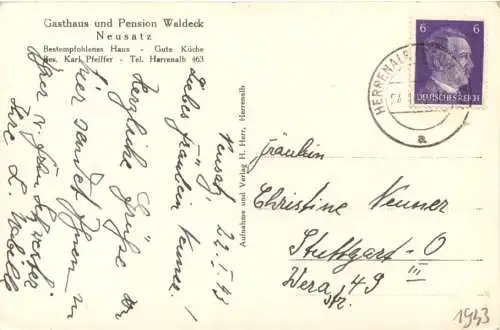 Gasthaus und Pension Waldeck
Neusatz
Bestempfohlenes Haus - Gute Küche
Bes. Karl Pfeiffer - Tel. Herrenalb 463
Neusatz, 22. I. 43
Liebes Fräulein Neuner!
Herzliche Grüße von
hier sendet Ihnen
Ihre L.
Aufnahme und Verlag H. Herr, Herrenalb
6 6
DEUTSCHES REICH
HERRENALB
a
Fräulein
Christine Neuner
Stuttgart-O
Wera 49 III
Str.
1943